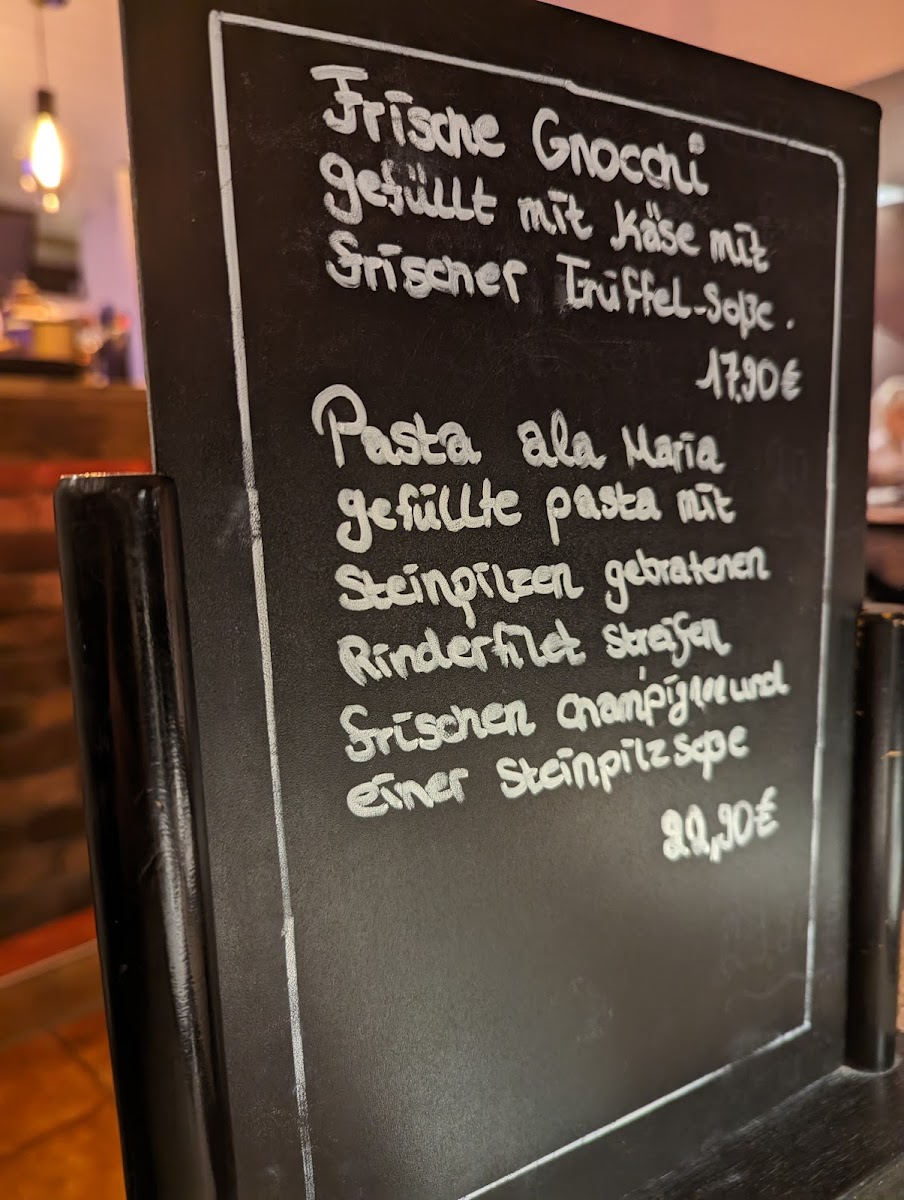 Frische Gnocchi
gefüllt mit Käse mit
frischer Trüffel-Soße.
17.90€
Pasta ala Maria
gefüllte pasta mit
Steinpilzen gebratenen
Rinderfilet streifen
frischen und
einer Steinpilzsoße
22,90€